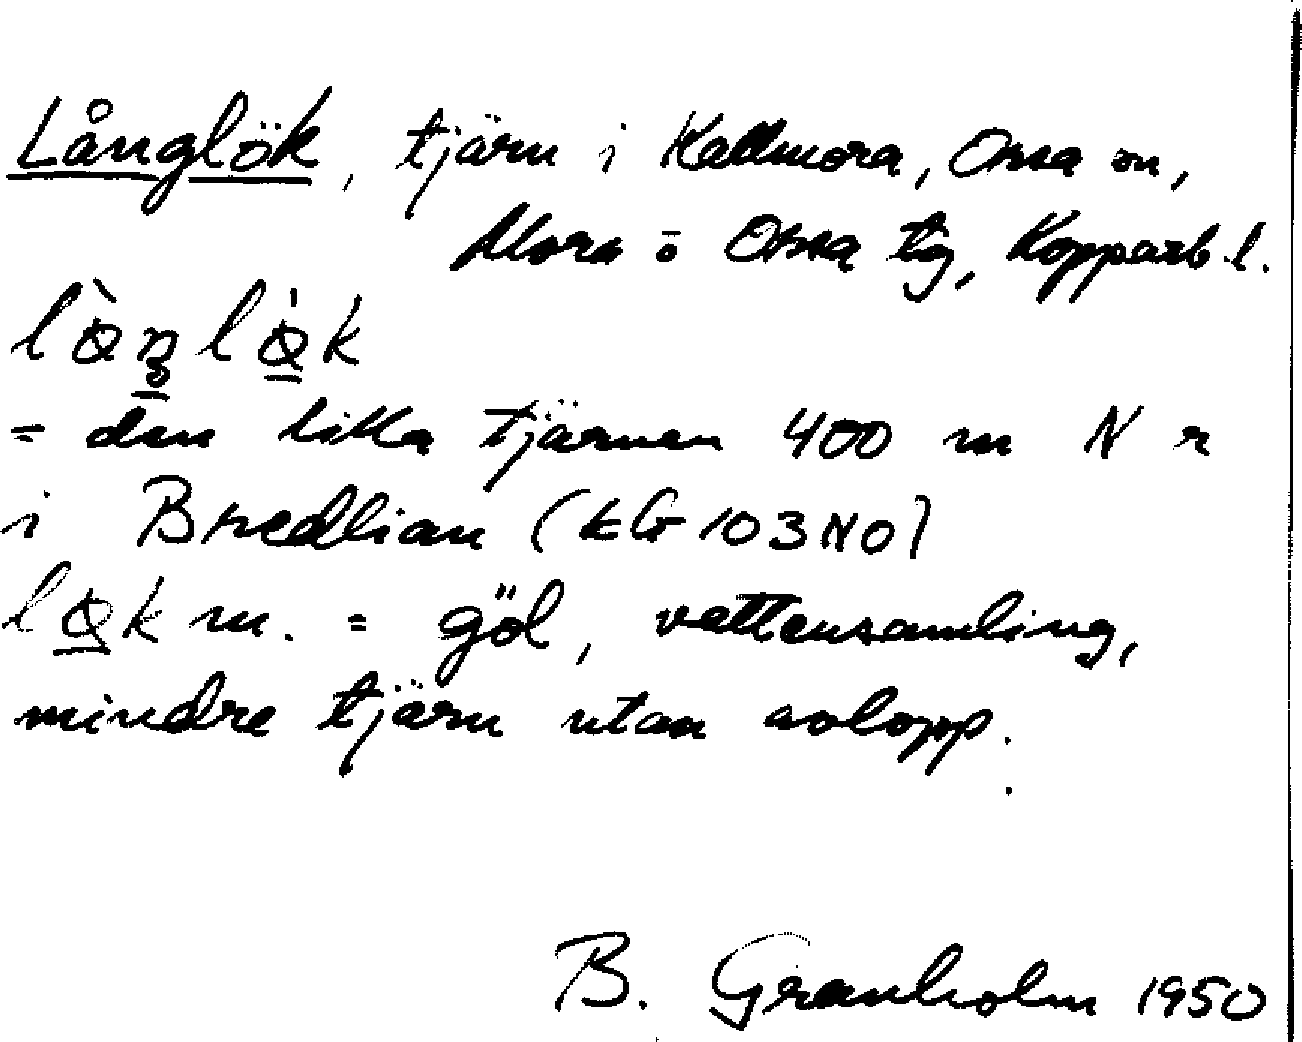 Långlök, tjärn i Kallmora, Orsa sn,
Mora o Orsa tg, Kopparb. l.
= den lilla tjärnen 400 m N r
i Bredlian (kG 103 NO)
m. = göl, vattensamling,
mindre tjärn utan avlopp.
B. Granholm 1950